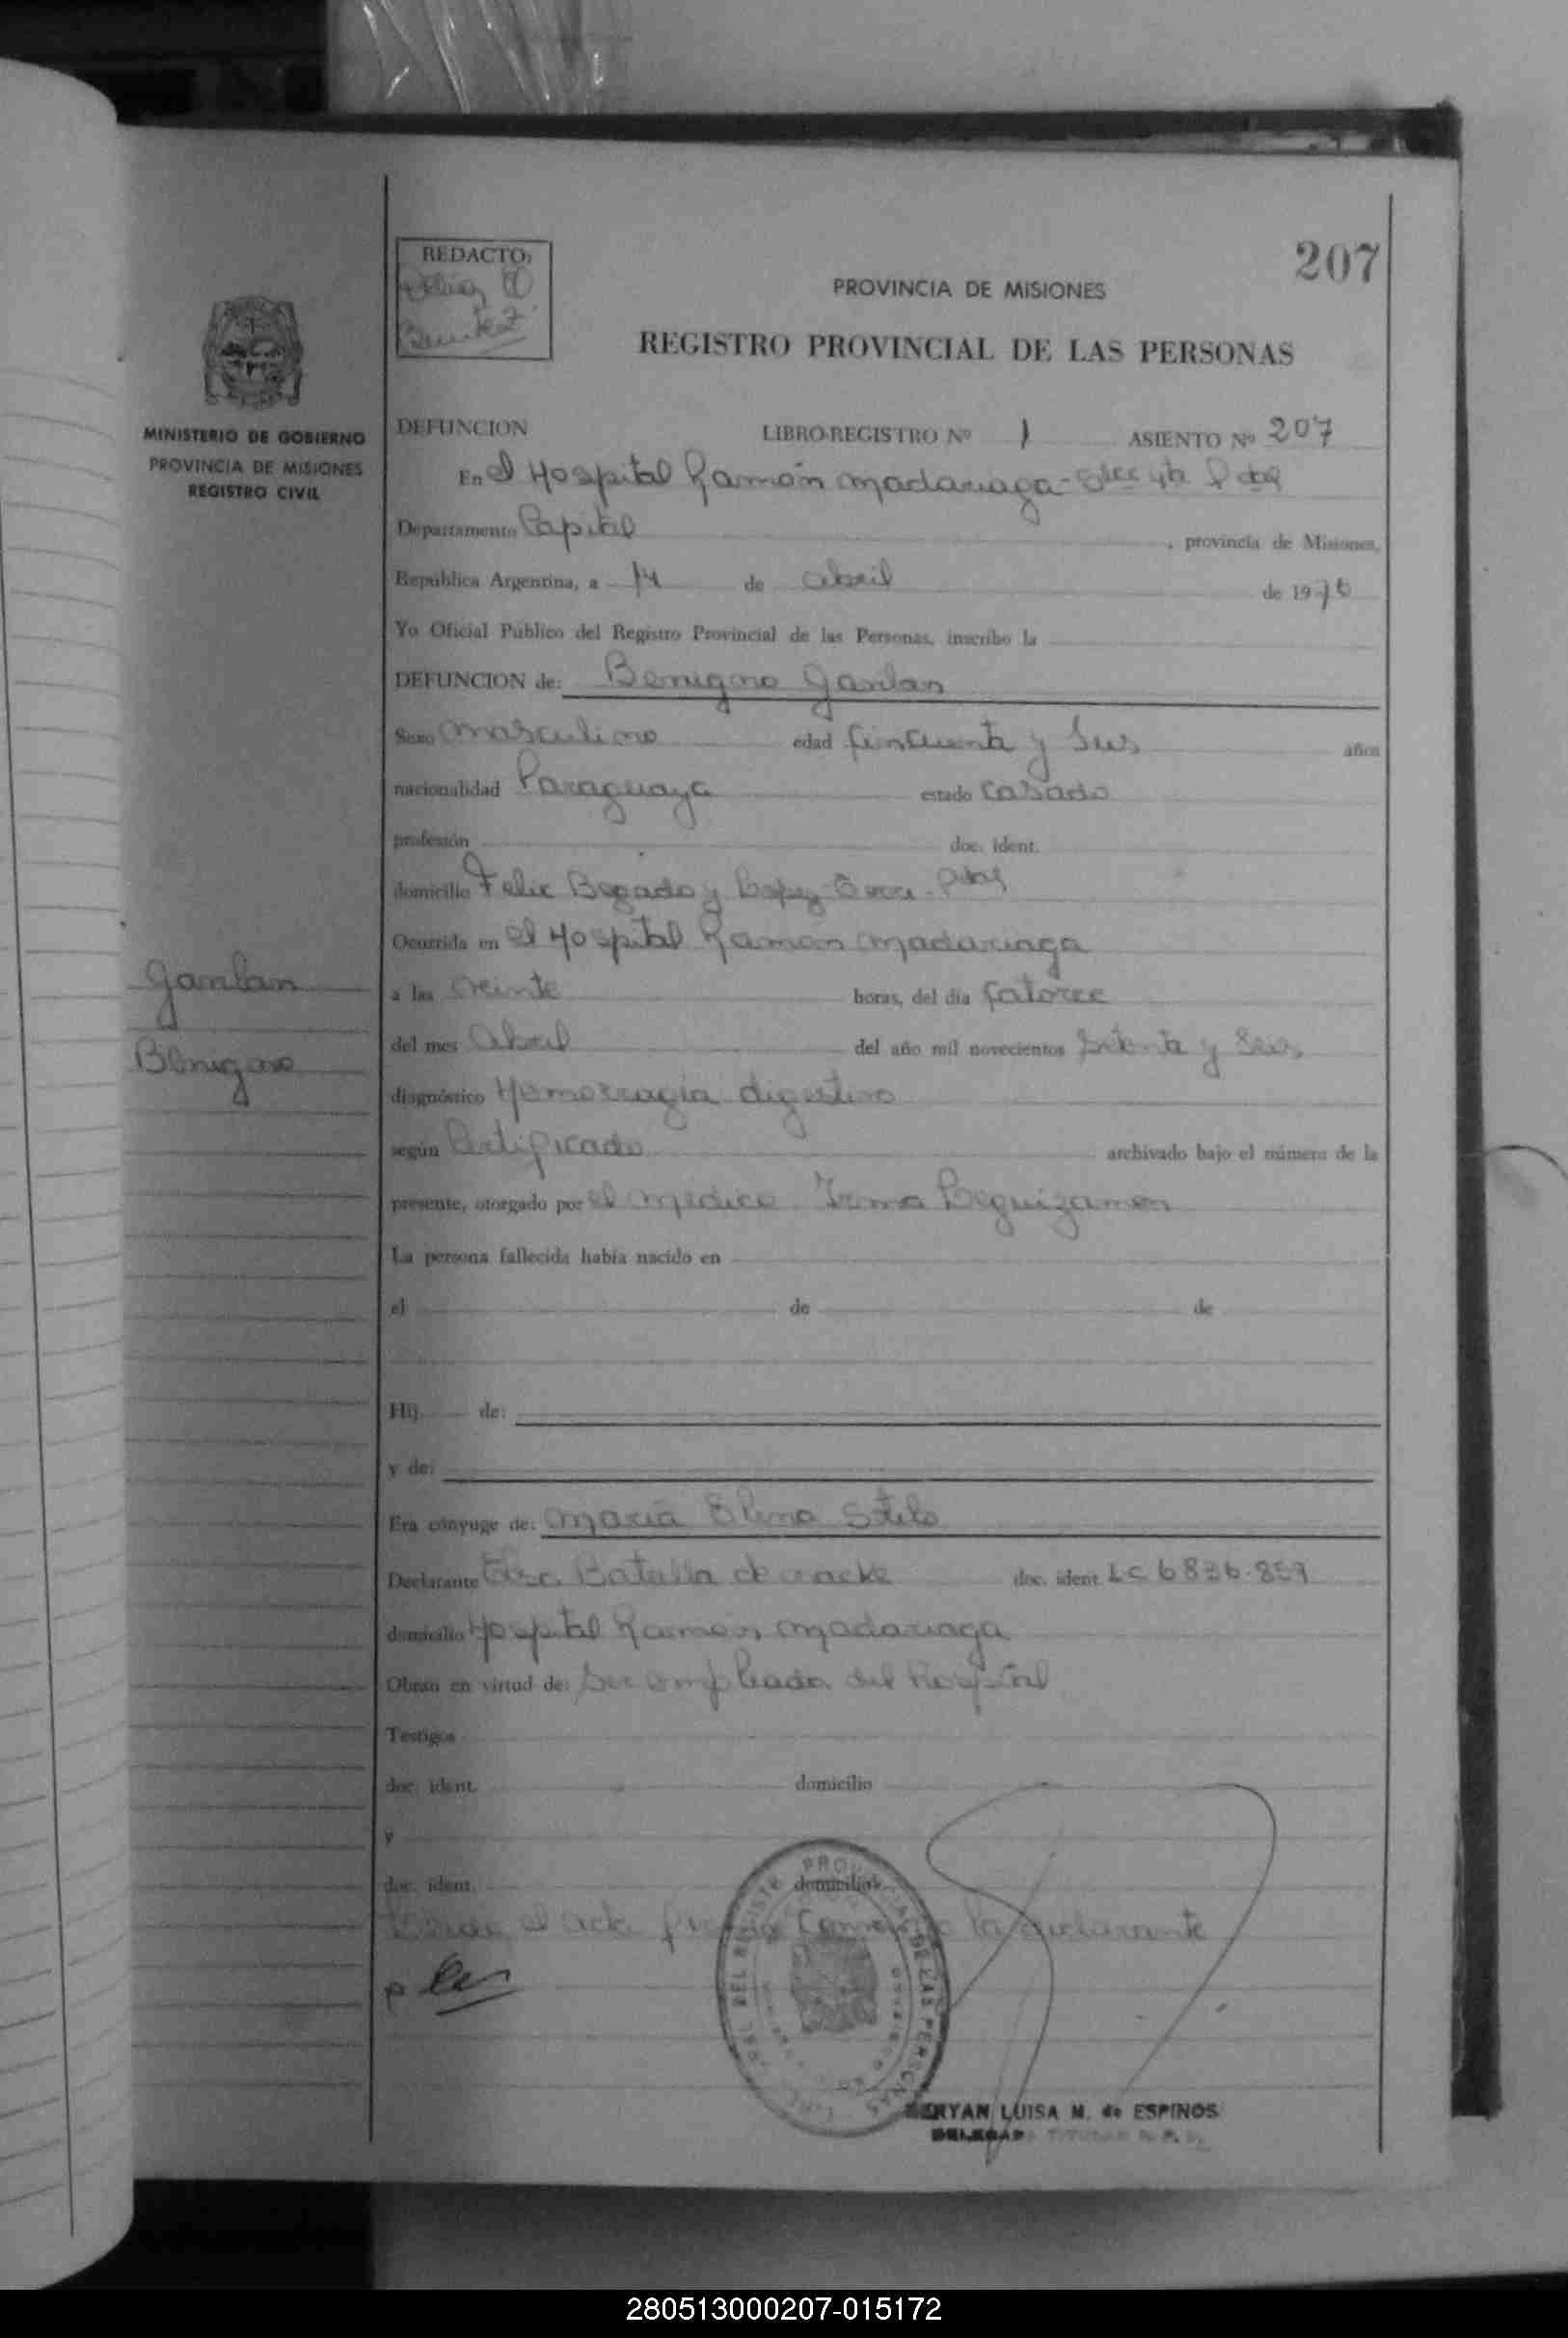 207
REDACTO:
Benitez
PROVINCIA DE MISIONES
REGISTRO PROVINCIAL DE LAS PERSONAS
MINISTERIO DE GOBIERNO
PROVINCIA DE MISIONES
REGISTRO CIVIL
DEFUNCION LIBRO-REGISTRO Nº 1 ASIENTO Nº 207
En el Hospital Ramón Madariaga
Departamento Capital, provincia de Misiones,
República Argentina, a 14 de abril de 1976
Yo Oficial Público del Registro Provincial de las Personas, inscribo la
DEFUNCION de: Benigno
Sexo masculino edad Cincuenta y Seis años
nacionalidad Paraguaya estado Casado
profesión doc. ident.
domicilio Felix Bogado y Lopez
Ocurrida en el Hospital Ramón Madariaga
Benigno
a las veinte horas, del día Catorce
del mes Abril del año mil novecientos Setenta y Seis
diagnóstico Hemorragia digestiva
según Certificado archivado bajo el número de la
presente, otorgado por el medico Irma Leguizamon
La persona fallecida había nacido en
el de de
Hij de:
y de:
Era cónyuge de: Maria Elena Sotelo
Declarante Batalla de doc. ident. LC 6836.859
domicilio Hospital Ramón Madariaga
Obran en virtud de: Ser empleada del hospital
Testigos
doc. ident. domicilio
y
doc. ident. domicilio
el acta firma la declarante
DE LAS PERSONAS
LUISA M. de ESPINOS
280513000207-015172